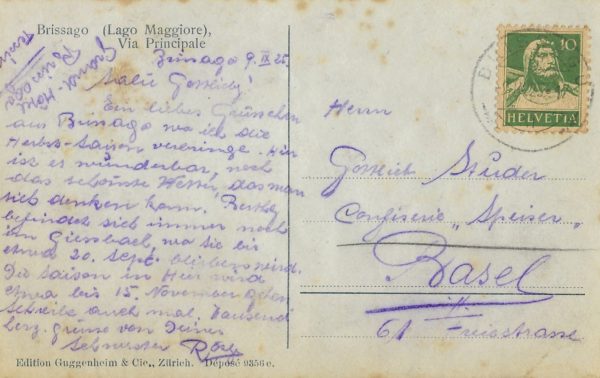 Brissago (Lago Maggiore),
Via Principale
Brissago 9. IX 25.
Mein Gottlieb!
Ein liebes Grüsschen
aus Brissago wo ich die
Herbst-Saison verbringe. Hier
ist es wunderbar, noch
das schönste Wetter, das man
sich denken kann. Bertha
befindet sich immer noch
im Giessbach, wo sie bis
etwa 20. Sept. bleiben wird.
Die Saison in Hier wird
etwa bis 15. November gehen
Schreibe auch mal. Tausend
herz. grüsse von Deiner
Schwester Rösly
Grand-Hotel
Brissago
Edition Guggenheim & Cie., Zürich. Déposé 9356 e.
10
HELVETIA
Herrn
Gottlieb Studer
Confiserie „Speiser"
Basel
61 Freiestrasse